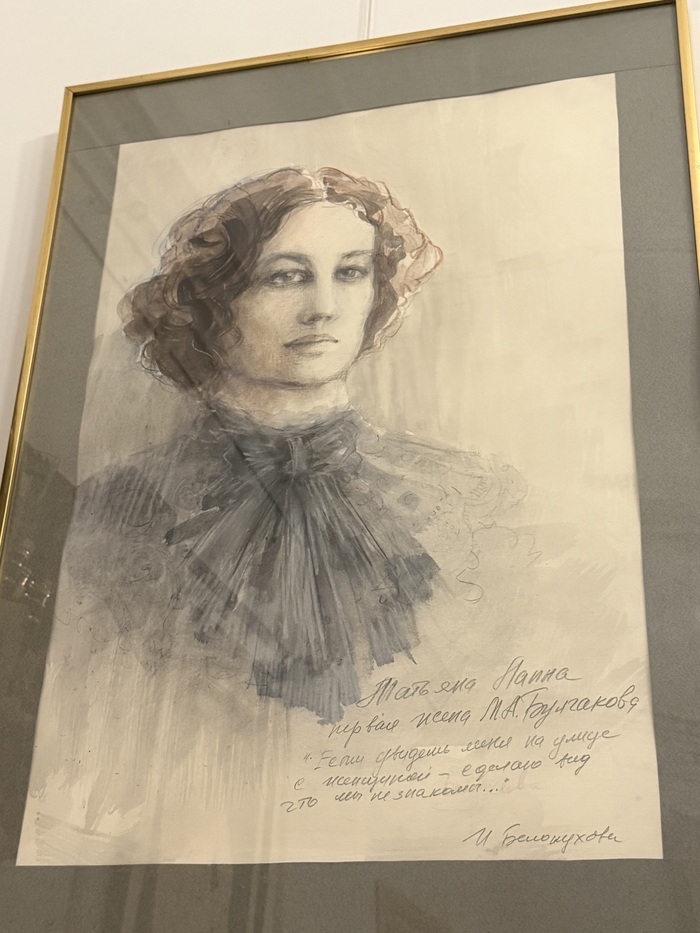 Татьяна Лаппа
первая жена М.А.Булгакова
"Если увидешь меня на улице
с женщиной – сделаю вид
что мы не знакомы..."
И Белокухова